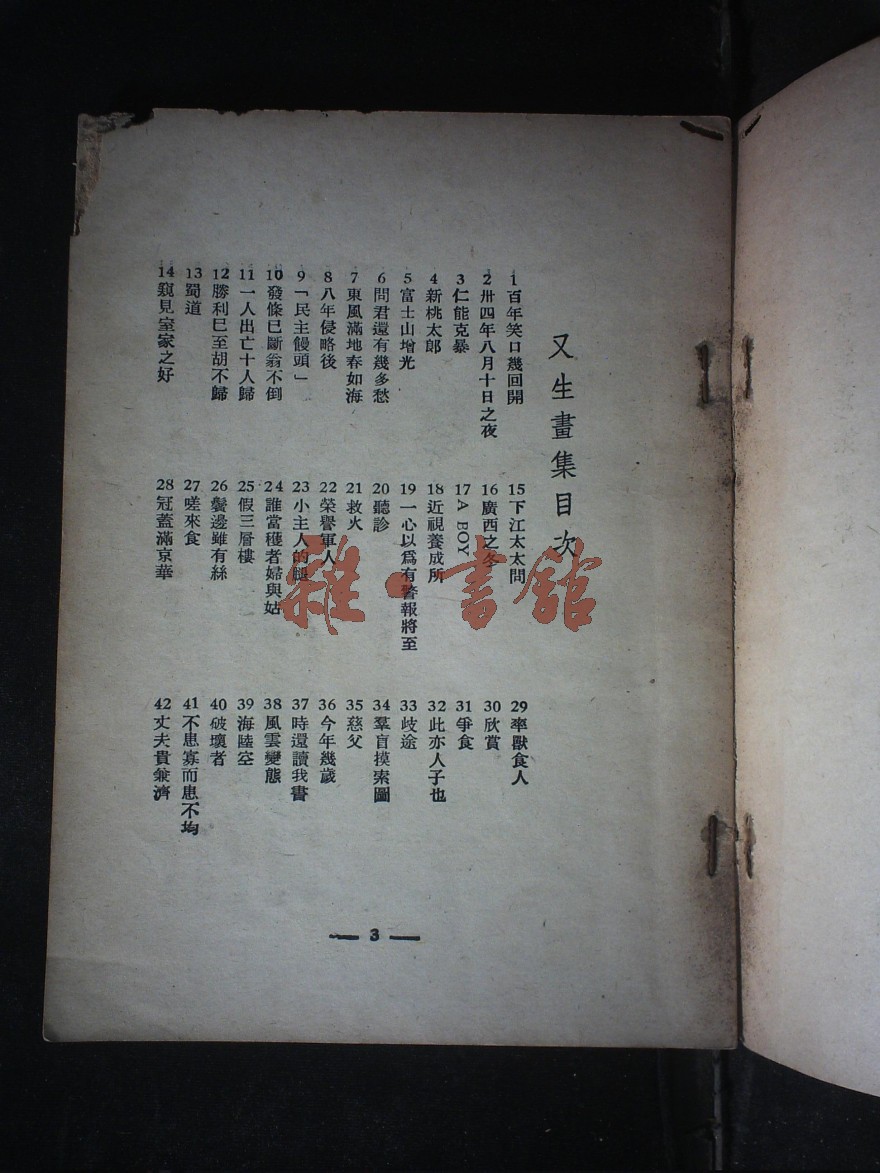 又生畫集目次
1 百年笑口幾回開
2 卅四年八月十日之夜
3 仁能克暴
4 新桃太郎
5 富士山增光
6 問君還有幾多愁
7 東風滿地春如海
8 八年侵略後
9 「民主饅頭」
10 發條已斷翁不倒
11 一人出亡十人歸
12 勝利已至胡不歸
13 蜀道
14 窺見室家之好
15 下江太太問
16 廣西之冬
17 A BOY
18 近視養成所
19 一心以爲有警報將至
20 聽診
21 救火
22 榮譽軍人
23 小主人的腿
24 誰當穫者婦與姑
25 假三層樓
26 鬢邊雖有絲
27 嗟來食
28 冠蓋滿京華
29 率獸食人
30 欣賞
31 爭食
32 此亦人子也
33 歧途
34 羣盲摸索圖
35 慈父
36 今年幾歲
37 時還讀我書
38 風雲變態
39 海陸空
40 破壞者
41 不患寡而患不均
42 丈夫貴兼濟
3
雜·書館